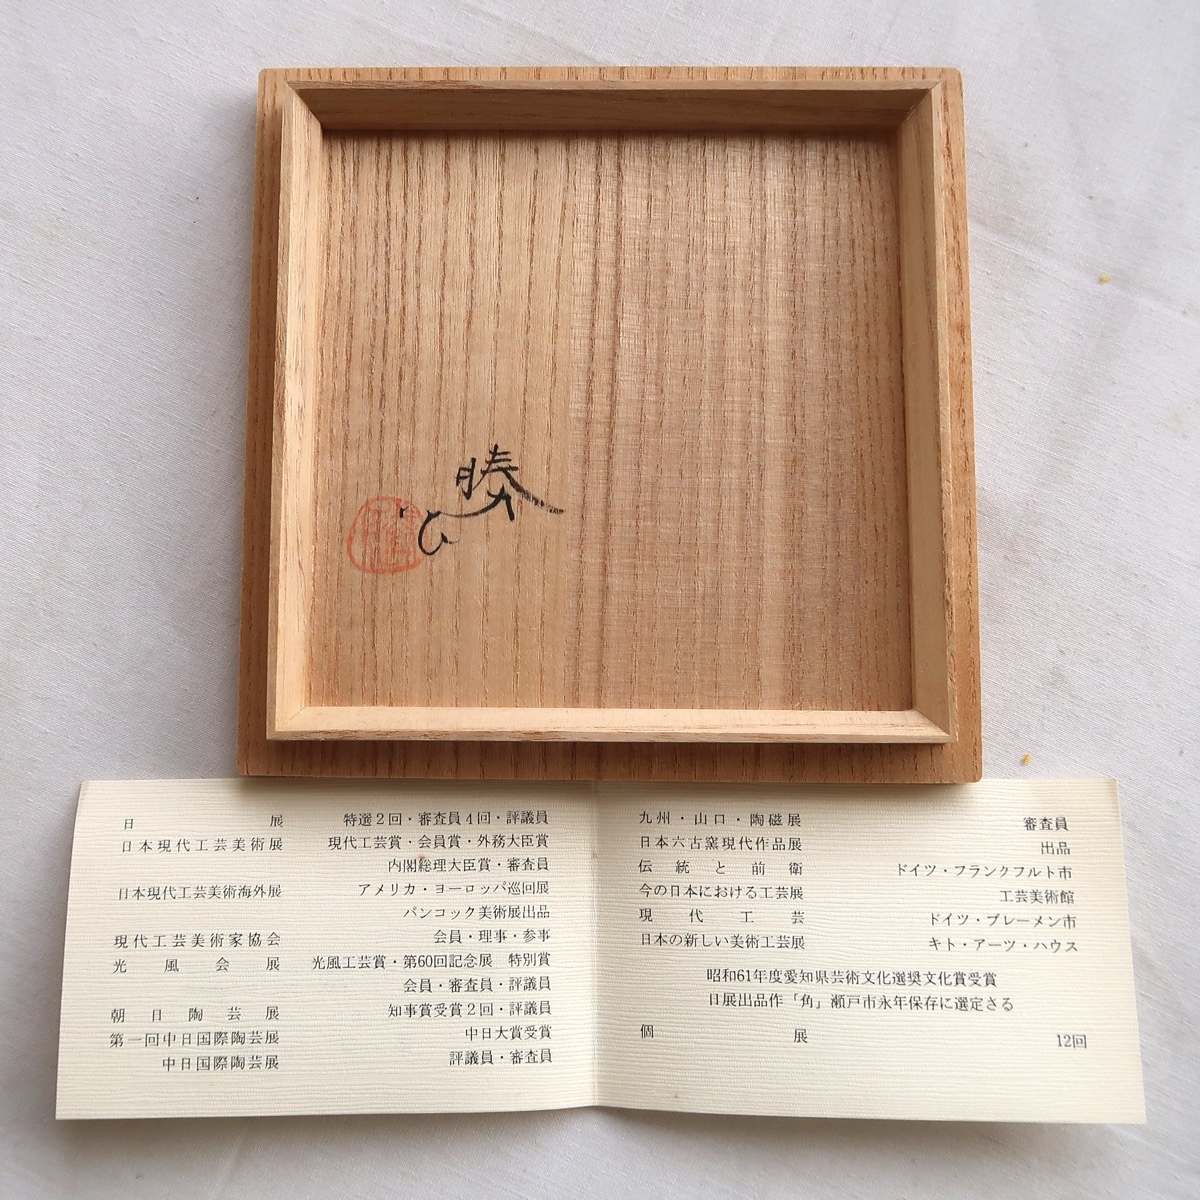 勝ひ
日展 特選2回・審査員4回・評議員
日本現代工芸美術展 現代工芸賞・会員賞・外務大臣賞
内閣総理大臣賞・審査員
日本現代工芸美術海外展 アメリカ・ヨーロッパ巡回展
バンコック美術展出品
現代工芸美術家協会 会員・理事・参事
光風会展 光風工芸賞・第60回記念展 特別賞
会員・審査員・評議員
朝日陶芸展 知事賞受賞2回・評議員
第一回中日国際陶芸展 中日大賞受賞
中日国際陶芸展 評議員・審査員
九州・山口・陶磁展 審査員
日本六古窯現代作品展 出品
伝統と前衛 ドイツ・フランクフルト市
今の日本における工芸展 工芸美術館
現代工芸 ドイツ・ブレーメン市
日本の新しい美術工芸展 キト・アーツ・ハウス
昭和61年度愛知県芸術文化選奨文化賞受賞
日展出品作「角」瀬戸市永年保存に選定さる
個展 12回